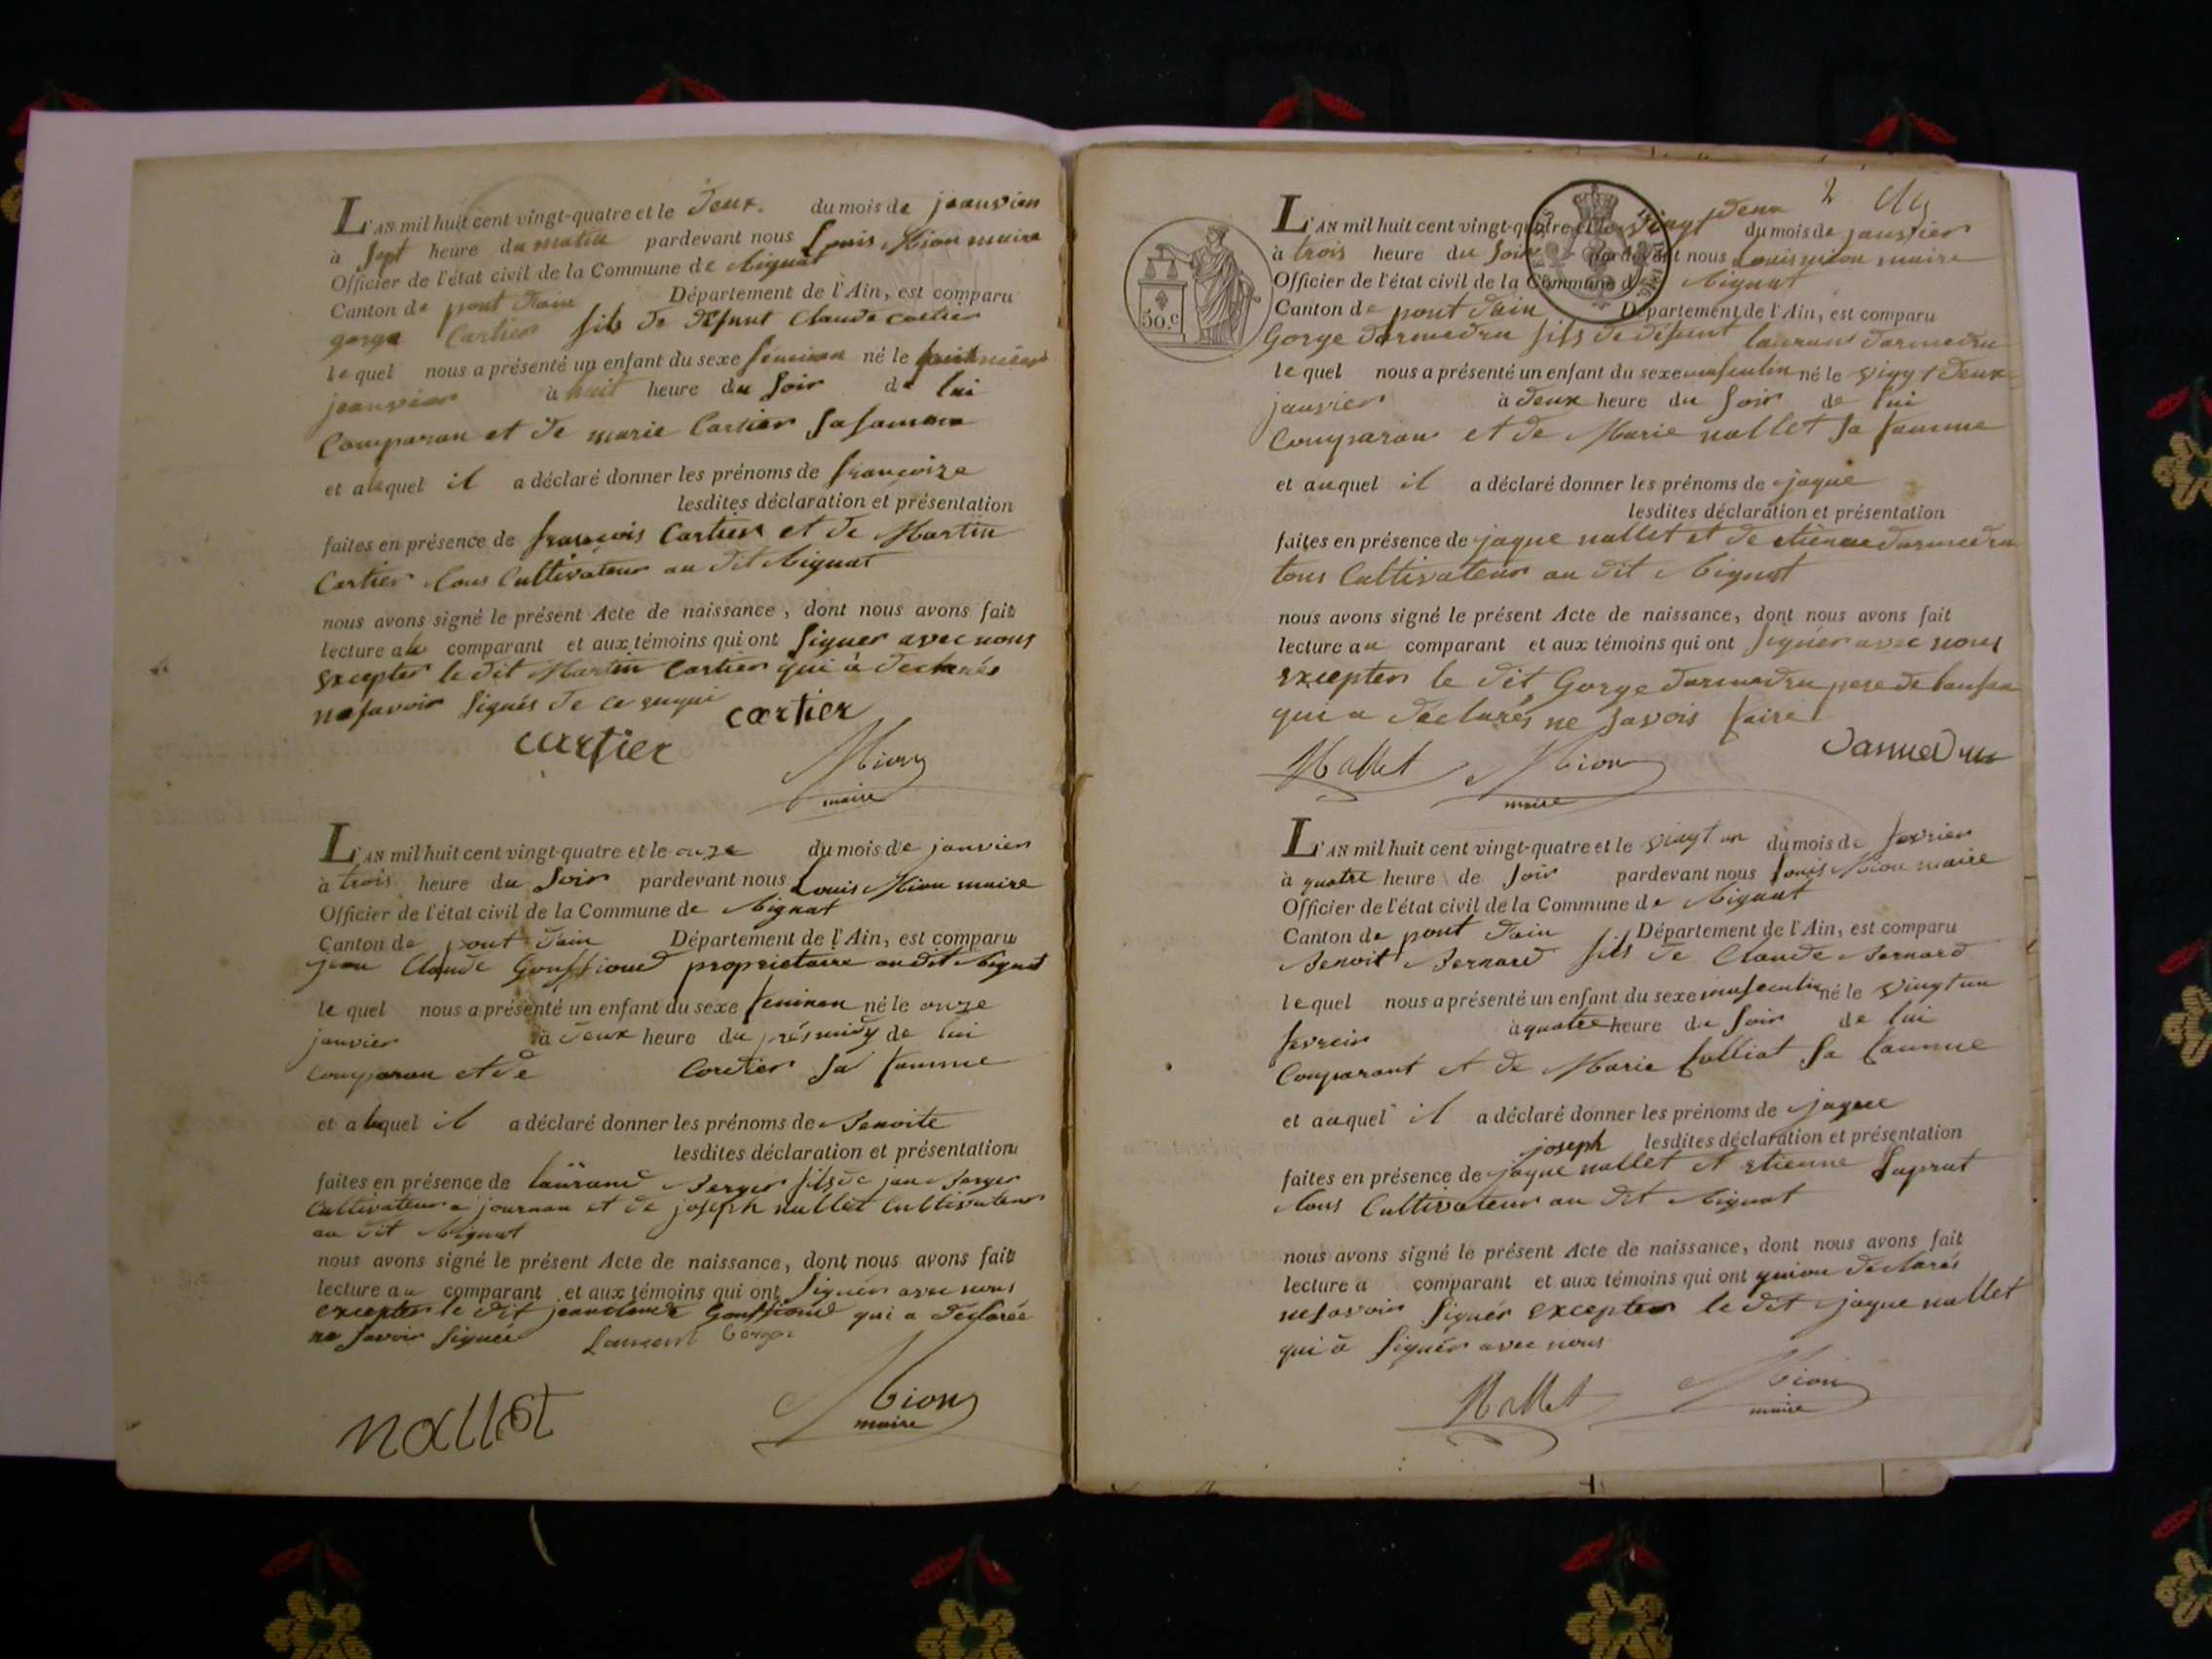 L'AN mil huit cent vingt-quatre et le Deux. du mois de jeanvier
à Sept heure du matin pardevant nous Louis Mion maire
Officier de l'état civil de la Commune de Rignat
Canton de pont Dain Département de l'Ain, est comparu
gorge Cartier fils de defunt Claude Cartier
lequel nous a présenté un enfant du sexe feminen né le
jeanvier à huit heure du soir de lui
Comparan et De marie Cartier Sa famme
et a laquel il a déclaré donner les prénoms de françoize
lesdites déclaration et présentation
faites en présence de françois Cartier et De Martin
Cartier tous Cultivateur au Dit Rignat
nous avons signé le présent Acte de naissance, dont nous avons fait
lecture au comparant et aux témoins qui ont Signer avec nous
Excepter le Dit Martin Cartier qui à Declarés
ne savoir Signés De ce
cartier
cartier
Mion
maire
L'AN mil huit cent vingt-quatre et le onze du mois de janvier
à trois heure du Soir pardevant nous Louis Mion maire
Officier de l'état civil de la Commune de Rignat
Canton de pont Dain Département de l'Ain, est comparu
jean Claude Gouffioud proprietaire au dit Rignat
lequel nous a présenté un enfant du sexe feminen né le onze
janvier à Deux heure du présmidy de lui
Comparan et de Cordier Sa famme
et a laquel il a déclaré donner les prénoms de Benoite
lesdites déclaration et présentation
faites en présence de laurand Berger fils de jean Berger
Cultivateur a journan et De joseph nallet Cultivateur
au Dit Rignat
nous avons signé le présent Acte de naissance, dont nous avons fait
lecture au comparant et aux témoins qui ont Signer avec nous
excepter le Dit jeanclaude Gouffioud qui a Declarée
ne Savoir Signée Laurent Berger
nallet
Mion
maire
2
L'AN mil huit cent vingt-quatre et le vingt Deux du mois de janvier
à trois heure du Soir pardevant nous Louis mion maire
Officier de l'état civil de la Commune de Rignat
50.c
Canton de pont Dain Département de l'Ain, est comparu
Gorge Darmedru fils De defunt laurans Darmedru
lequel nous a présenté un enfant du sexe masculin né le vingt Deux
janvier à Deux heure du Soir de lui
Comparan et de Marie nallet Sa famme
et auquel il a déclaré donner les prénoms de jaque
lesdites déclaration et présentation
faites en présence de jaque nallet et De etienne Darmedru
tous Cultivateur au dit Rignat
nous avons signé le présent Acte de naissance, dont nous avons fait
lecture au comparant et aux témoins qui ont Signer avec nous
Excepter le Dit Gorge Darmedru pere De lanfan
qui a Declarés ne Savois faire
Nallet Mion Darmedru
maire
L'AN mil huit cent vingt-quatre et le vingt un du mois de fevrier
à quatre heure de Soir pardevant nous Louis Mion maire
Officier de l'état civil de la Commune de Rignat
Canton de pont Dain Département de l'Ain, est comparu
Benoit Bernard fils De Claude Bernard
lequel nous a présenté un enfant du sexe masculin né le vingt un
fevreir à quatre heure du Soir de lui
Comparant et De Marie folliat Sa famme
et auquel il a déclaré donner les prénoms de jaque
joseph lesdites déclaration et présentation
faites en présence de jaque nallet et etienne Luprat
tous Cultivateur au Dit Rignat
nous avons signé le présent Acte de naissance, dont nous avons fait
lecture a comparant et aux témoins qui ont quion Declarés
ne savoir Signér Excepter le Dit jaque nallet
qui à Signér avec nous
Nallet Mion
maire